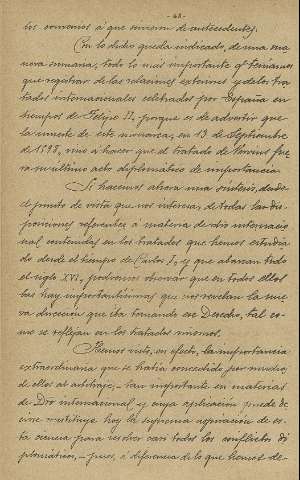 - 43 -
los romanos á que sirvieran de antecedentes.
Con lo dicho queda indicado, de una ma
nera sumaria, todo lo más importante q' teníamos
que registrar de las relaciones exteriores y de los tra
tados internacionales celebrados por España en
tiempos de Felipe II, porque es de advertir que
la muerte de este monarca, en 13 de Septiembre
de 1598, vino á hacer que el tratado de Vervins fue
ra su último acto diplomático de importancia.
Si hacemos ahora una síntesis, desde
el punto de vista que nos interesa, de todas las dis
posiciones referentes á materia de dro internacio
nal contenidas en los tratados que hemos estudia
do desde el tiempo de Carlos I, y que abarcan todo
el siglo XVI, podremos observar que en todos ellos
las hay importantísimas que nos revelan la nue
va dirección que iba tomando ese Derecho, tal co-
mo se reflejan en los tratados mismos.
Hemos visto, en efecto, la importancia
extraordinaria que se había concedido por muchos
de ellos al arbitraje, tan importante en materias
de Dro internacional y cuya aplicación puede de
cirse constituye hoy la suprema aspiración de es
ta ciencia para resolver casi todos los conflictos di
plomáticos, - pues, á diferencia de lo que hemos de-